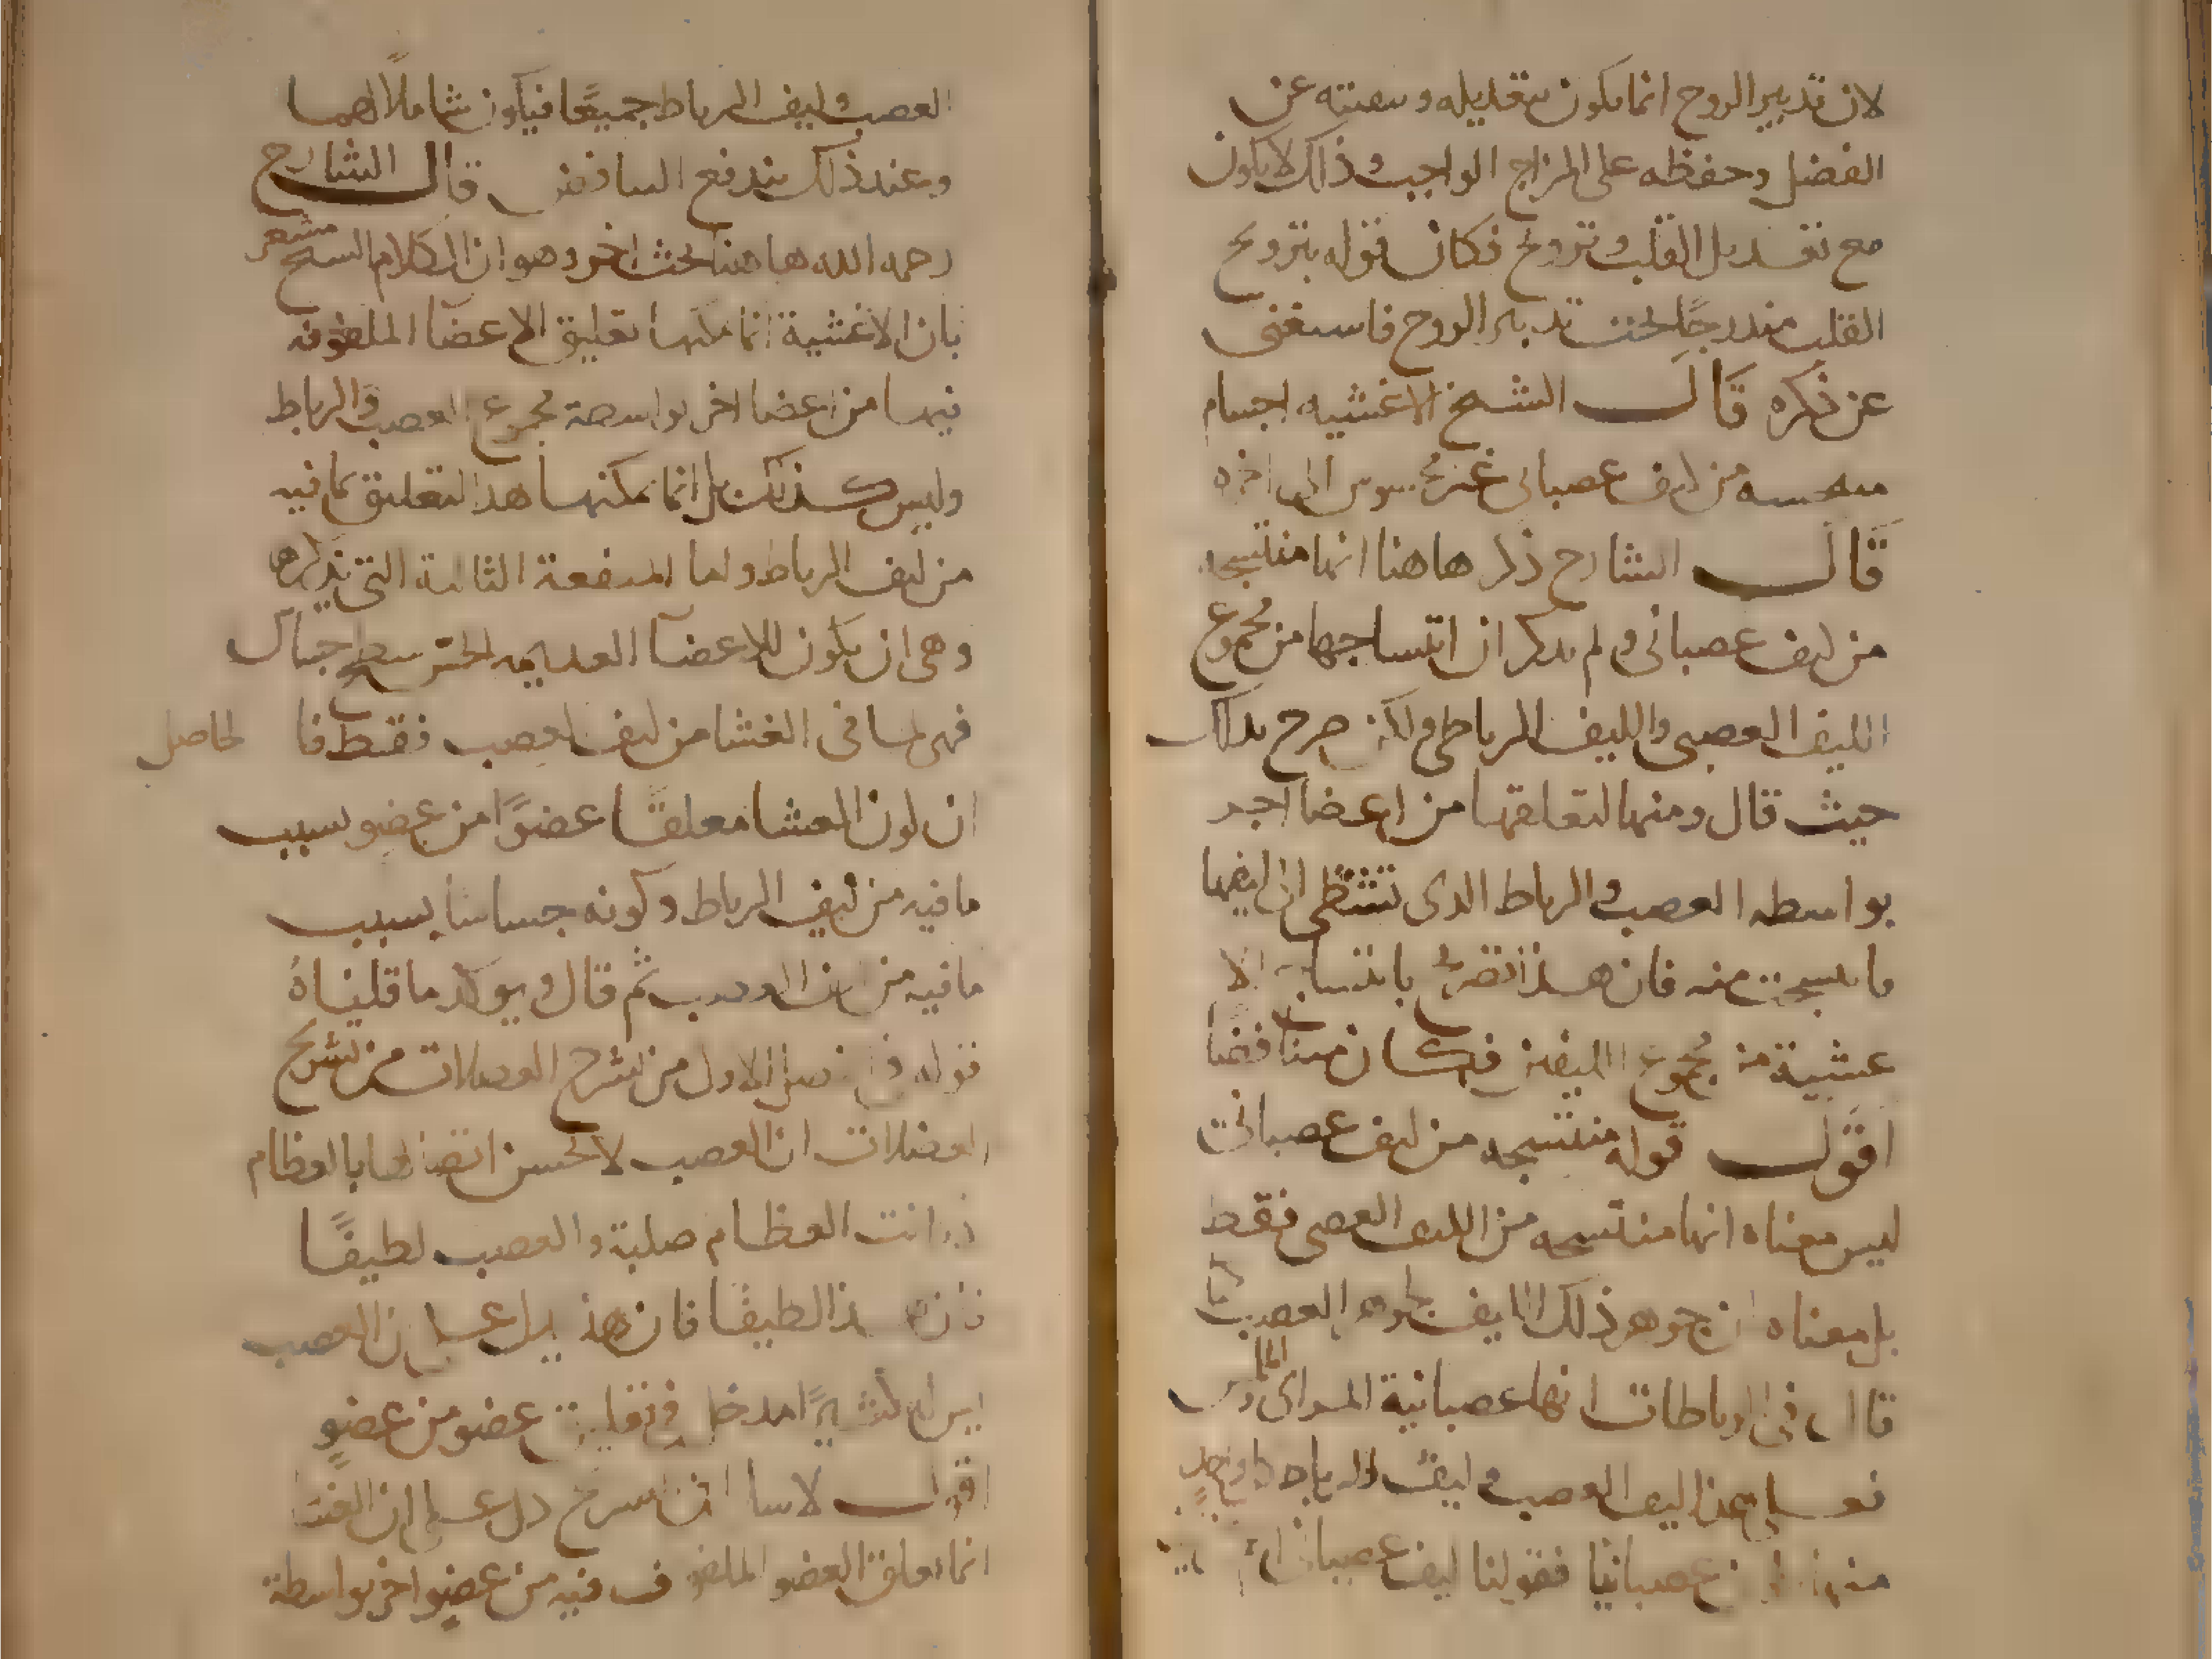 لان تدبير الروح انما يكون بتعديله وسعته عن
الفضل وحفظه على المزاج الواجب وذلك لا يكون
مع تعديل القلب وترويح فكان قوله بترويح
القلب مندرجًا تحت تدبير الروح فاستغنى
عن ذكره قال الشيخ الاغشيه اجسام
منتسجه من ليف عصبانى غير محسوس الى اخره
قال الشارح ذكر هاهنا انها منتسجه
من ليف عصبانى ولم يذكر ان انتساجها من مجموع
الليف العصبى والليف الرباطى ولكن صرح بذلك
حيث قال ومنها لتعلقها من اعضا اخر
بواسطه العصب والرباط الذى تشظى الى ليفها
ما نسجت منه فان هذا تصريح بانتساج الا
غشية من مجموع الليفين فكان مناقضًا
اقول قوله منتسجه من ليف عصبانى
ليس معناه انها منتسجه من الليف العصبى فقط
بل معناه ان جوهر ذلك الليف كجوهر العصب كما
قال فى الرباطات انها عصبانية المراى
فعلى هذا ليف العصب وليف الرباط كل واحد
منهما عصبانيا فقولنا ليف عصبانى
العصب وليف الرباط جميعًا فيكون شاملًا لهما
وعند ذلك يندفع التناقض قال الشارح
رحمه الله هاهنا بحث اخر وهو ان كلام الشيخ مشعر
بان الاغشية انما يمكنها تعليق الاعضا الملفوفه
فيها من اعضا اخر بواسطة مجموع العصب والرباط
وليس كذلك بل انما يمكنها هذا التعليق بما فيه
من ليف الرباط واما المنفعة الثالثة التى يذكرها
وهى ان يكون للاعضا العديمه الحس سطح حساس
فهى لما فى الغشا من ليف العصب فقط فالحاصل
ان كون الغشا معلقًا عضوًا من عضو بسبب
ما فيه من ليف الرباط وكونه حساسا بسبب
ما فيه من ليف العصب ثم قال ويوكد ما قلناه
قوله فى فصل الاول من تشريح العضلات من تشريح
العضلات ان العصب لا يحسن اتصالها بالعظام
اذ كانت العظام صلبة والعصب لطيفًا
فان هذا لطيفًا فان هذا يدل على ان العصب
ليس له كثيرًا مدخل فى تعليق عضو من عضوٍ
اقول لا سلم ان الشرح دل على ان الغشا
انما يعلق العضو الملفوف فيه من عضو اخر بواسطة